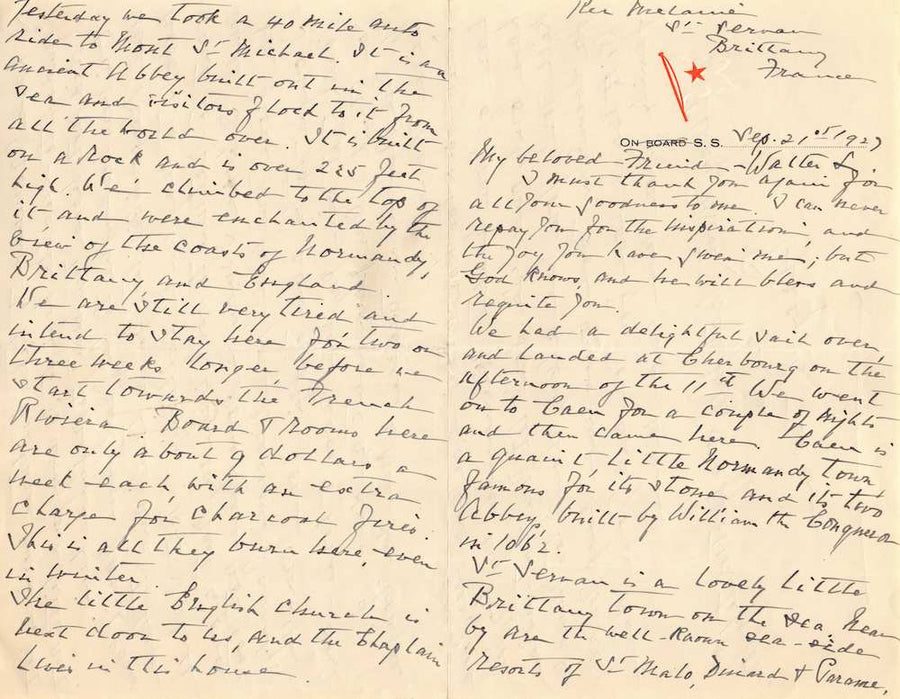 Ker Melanie
St Servan
Brittany
France
ON BOARD S. S. Sep. 21st 1927
My beloved Friend - Walter L,
I must thank you again for
all your goodness to me. I can never
repay you for the inspiration, and
the joy you have given me; but
God knows, and he will bless and
requite you.
We had a delightful sail over,
and landed at Cherbourg on the
afternoon of the 11th We went
on to Caen for a couple of nights
and then came here. Caen is
a quaint, little Normandy town
famous for its stone and its two
Abbey, built by William the Conqueror
in 1062.
St Servan is a lovely little
Brittany town on the sea. Near
by are the well-known sea-side
resorts of St Malo, Dinard & Parame.
Yesterday we took a 40 mile auto
ride to Mont St Michael. It is an
ancient Abbey built out in the
sea and visitors flock to it from
all the world over. It is built
on a rock and is over 225 feet
high. We climbed to the top of
it and were enchanted by the
view of the coasts of Normandy,
Brittany and England.
We are still very tired and
intend to stay here for two or
three weeks longer before we
start towards the French
Riviera. Board & rooms here
are only about 9 dollars a
week each, with an extra
charge for charcoal fires.
This is all they burn here, even
in winter.
The little English church is
next door to us, and the Chaplain
lives in this house.